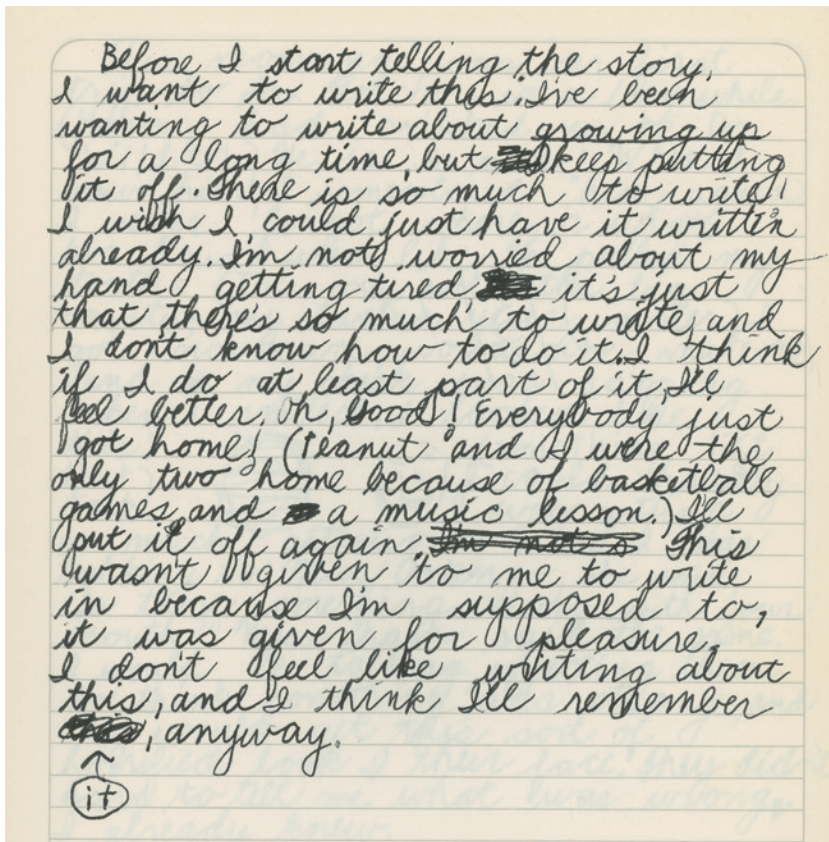 Before I start telling the story,
I want to write this. I've been
wanting to write about growing up
for a long time, but keep putting
it off. There is so much to write!
I wish I could just have it written
already. I'm not worried about my
hand getting tired it's just
that there's so much to write, and
I don't know how to do it. I think
if I do at least part of it, I'll
feel better. Oh, Good! Everybody just
got home! (Peanut and I were the
only two home because of basketball
games, and a music lesson.) I'll
put it off again. I'm not s This
wasn't given to me to write
in because I'm supposed to,
it was given for pleasure.
I don't feel like writing about
this, and I think I'll remember
this, anyway.
it